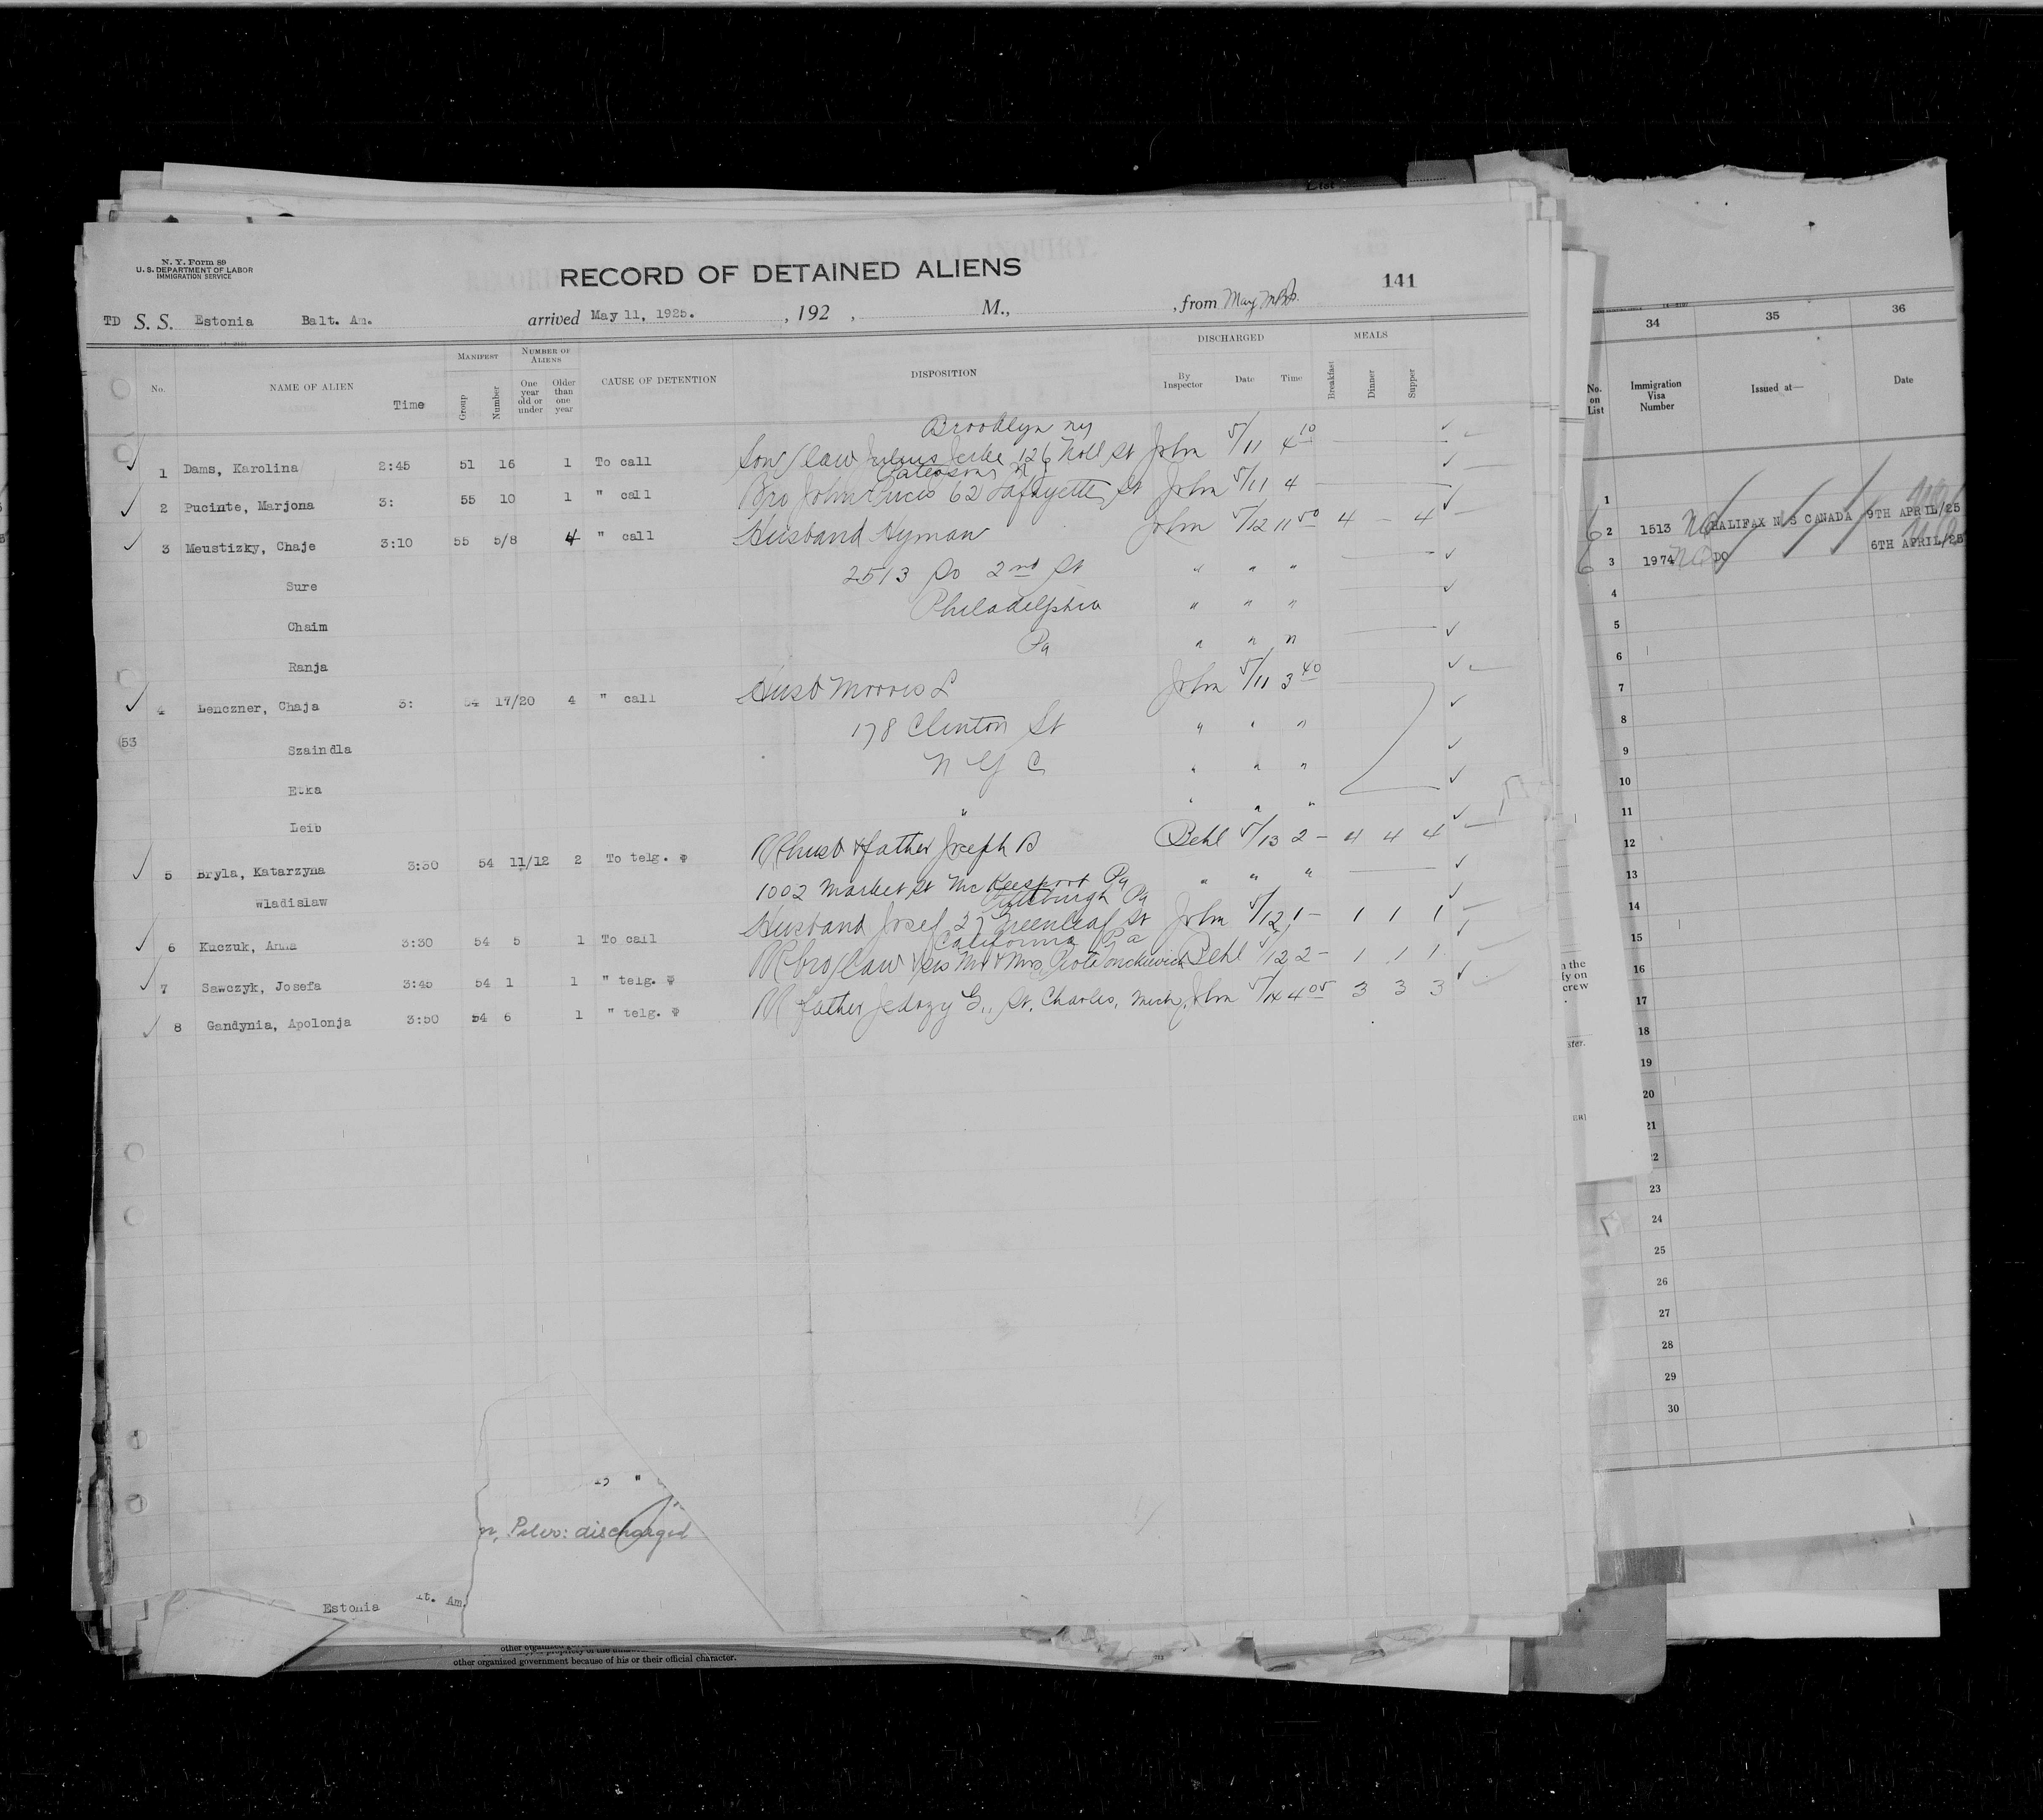 List
N. Y. Form 89
U. S. DEPARTMENT OF LABOR
IMMIGRATION SERVICE
RECORD OF DETAINED ALIENS
141
TD S. S. Estonia Balt. Am. arrived May 11, 1925. , 192 , M., , from
No. NAME OF ALIEN Time MANIFEST Group Number NUMBER OF ALIENS One year old or under Older than one year CAUSE OF DETENTION DISPOSITION DISCHARGED By Inspector Date Time MEALS Breakfast Dinner Supper
Brooklyn ny
1 Dams, Karolina 2:45 51 16 1 To call Son/law Julius 126 Noll St John 5/11 4 10
2 Pucinte, Marjona 3: 55 10 1 " call Bro John 62 Lafayette St John 5/11 4
3 Meustizky, Chaje 3:10 55 5/8 4 " call Husband Hyman John 5/12 11 50 4 — 4
Sure 2513 So 2nd St " " "
Chaim Philadelphia " " "
Ranja Pa " " "
4 Lenczner, Chaja 3: 54 17/20 4 " call Husb Morris L John 5/11 3 40
53
Szaindla 178 Clinton St " " "
Etka N Y C " " "
Leib " " " "
5 Bryla, Katarzyna 3:30 54 11/12 2 To telg. husb & father Joseph B Behl 5/13 2 — 4 4 4
Wladislaw 1002 Market St McKeesport Pa " " "
Pittsburgh Pa
6 Kuczuk, Anna 3:30 54 5 1 To call Husband Josef 37 Greenleaf St John 5/12 1 — 1 1 1
California Pa
7 Sawczyk, Josefa 3:45 54 1 1 " telg. bro/law & sis Mr & Mrs Behl 5/12 2 — 1 1 1
8 Gandynia, Apolonja 3:50 54 6 1 " telg. father G., St. Charles, Mich, John 5/14 4 05 3 3 3
discharged
Estonia lt. Am.
other organized government because of his or their official character.
34 35 36
No. on List Immigration Visa Number Issued at— Date
1
2 1513 HALIFAX N S CANADA 9TH APRIL/25
3 1974 DO 6TH APRIL/25
4
5
6
7
8
9
10
11
12
13
14
15
16
17
18
19
20
21
22
23
24
25
26
27
28
29
30
n the
ly on
crew
ster.